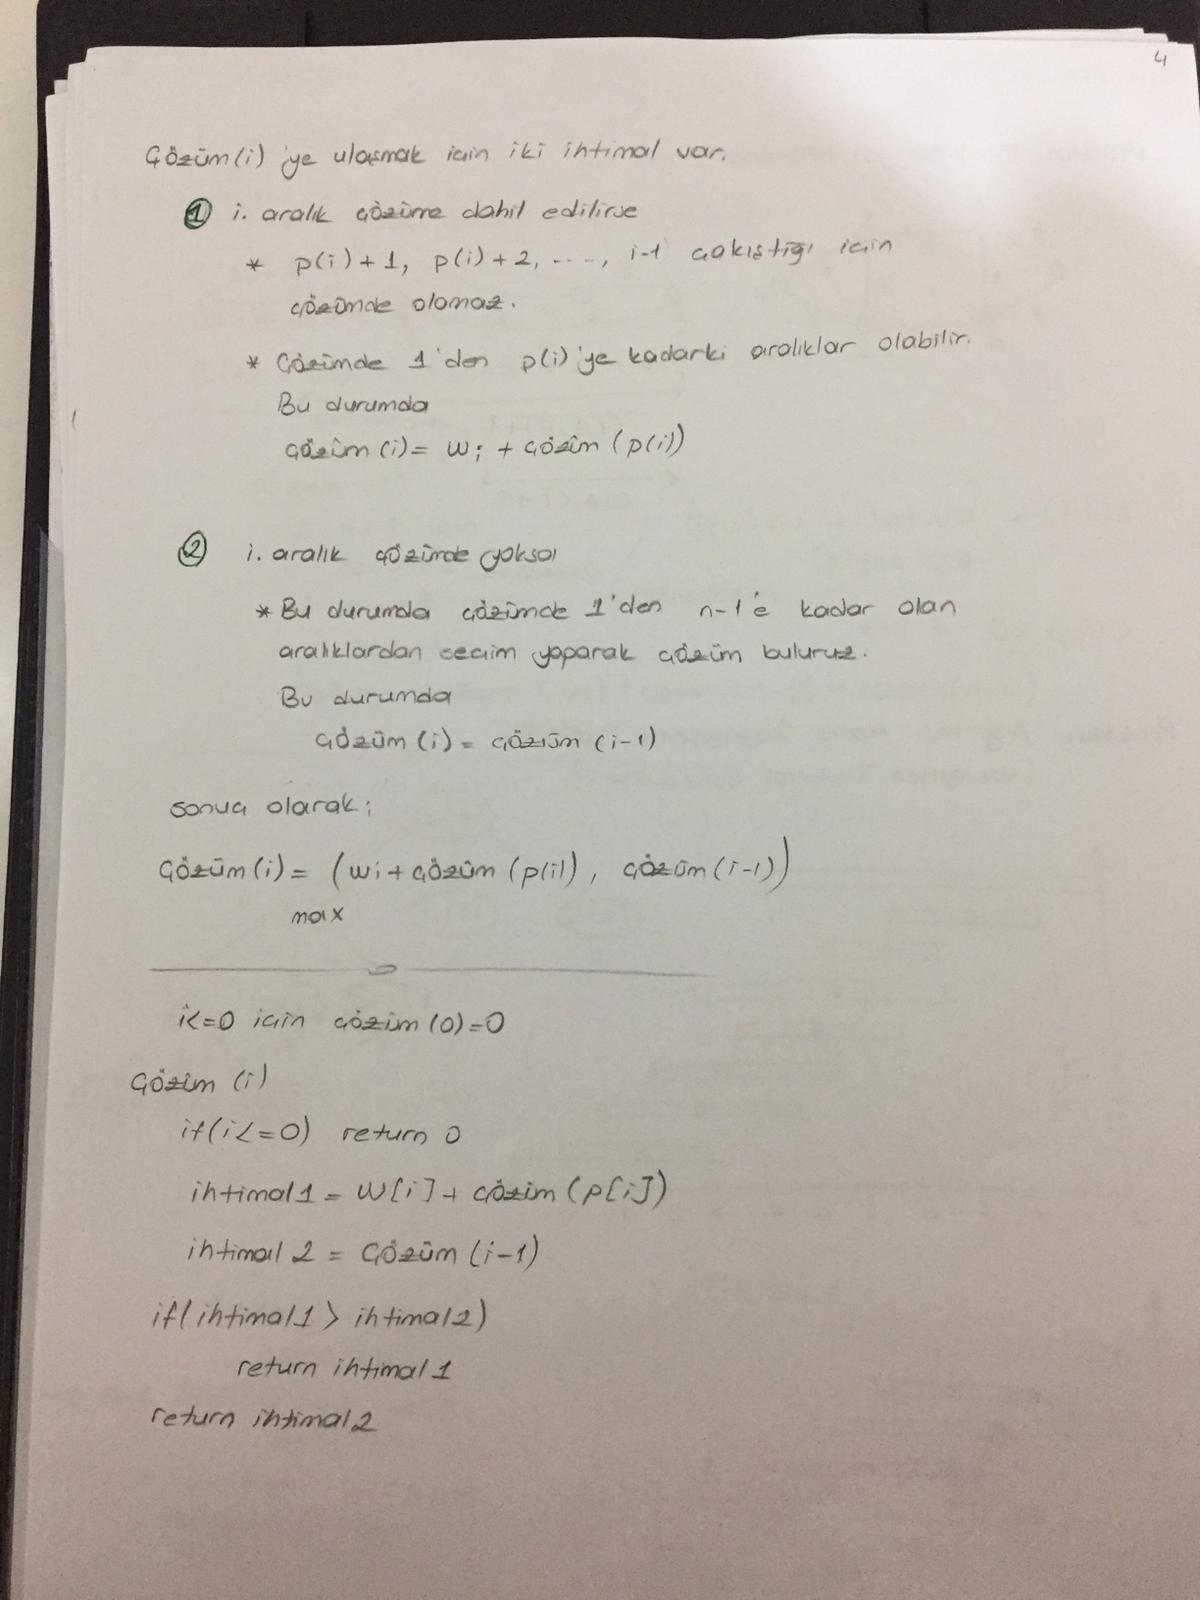 4
Çözüm(i)'ye ulaşmak için iki ihtimal var.
1 i. aralık çözüme dahil edilirse
* p(i)+1, p(i)+2, ...., i-1 çakıştığı için
çözümde olamaz.
* Çözümde 1'den p(i)'ye kadarki aralıklar olabilir.
Bu durumda
çözüm (i) = wi + çözüm (p(i))
2 i. aralık çözümde yoksa
* Bu durumda çözümde 1'den n-1'e kadar olan
aralıklardan seçim yaparak çözüm buluruz.
Bu durumda
çözüm (i) = çözüm (i-1)
sonuç olarak;
Çözüm(i) = (wi + çözüm (p(i)), çözüm (i-1))
max
i<=0 için çözüm (0)=0
Çözüm (i)
if(i<=0) return 0
ihtimal1 = W[i] + çözüm (p[i])
ihtimal 2 = Çözüm (i-1)
if(ihtimal1 > ihtimal2)
return ihtimal1
return ihtimal2